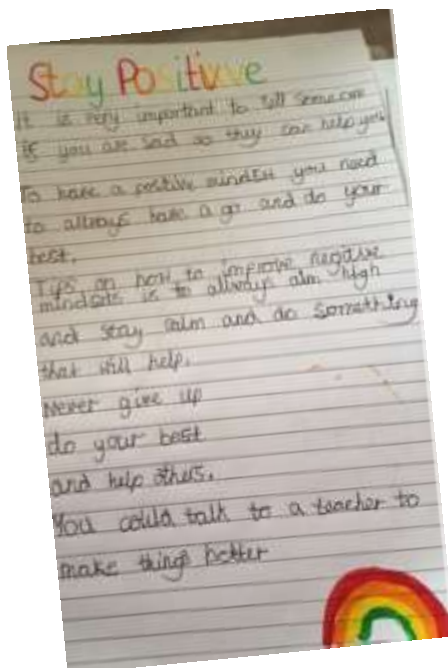 Stay Positivve
It is very important to tell someone
if you are sad so they can help you
To have a positive mindset you need
to allways have a go and do your
best.
Tips on how to improve negative
mindsets is to allways aim high
and stay calm and do something
that will help.
Never give up
do your best
and help others.
You could talk to a teacher to
make things better